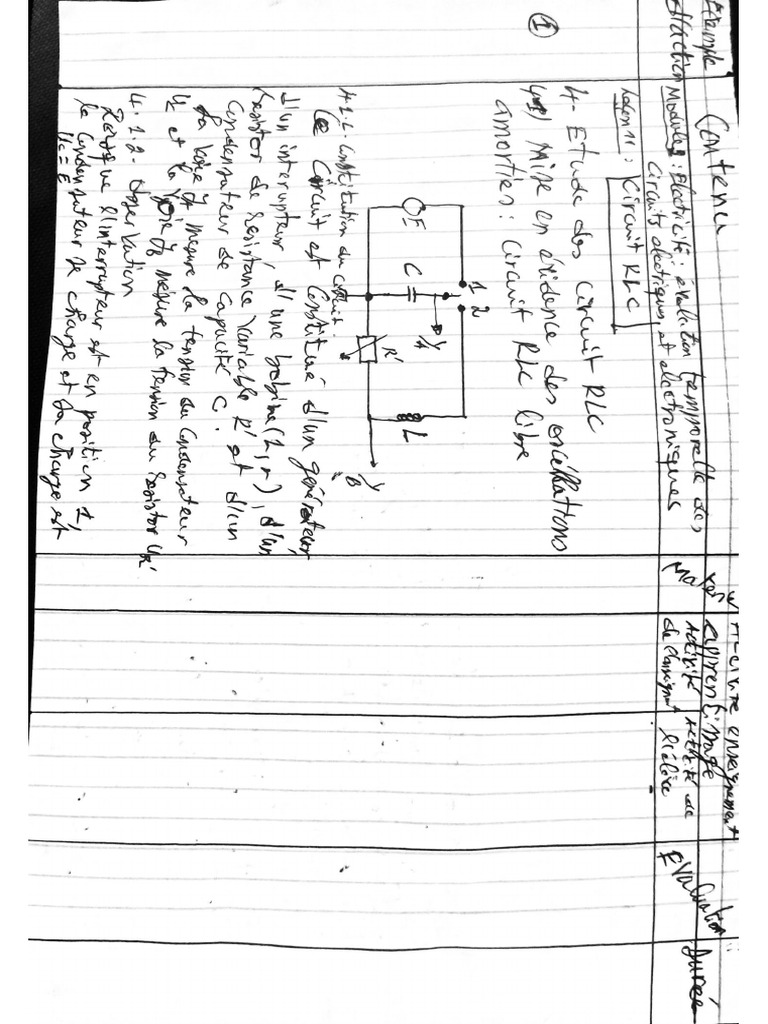 Contenu
Exemple
d'action
Module : Electricité : évolution temporelle des
Circuits électriques et électroniques
Leçon 11 : Circuit RLC
4- Etude des Circuit RLC
4-1) Mise en évidence des oscillations
amorties : Circuit RLC libre
①
1
2
E
C
YA
R'
L
YB
4.1.1 Constitution du circuit
Le Circuit est Constitué d'un générateur,
d'un interrupteur, d'une bobine (L, r), d'un
Resistor de Resistance variable R' et d'un
Condensateur de Capacité C.
La voie YA mesure la tension du Condensateur
Uc et la voie YB mesure la tension du Resistor UR'
4.1.2- Observation
Lorsque l'interrupteur est en position 1,
le condensateur se charge et sa charge est
uc = E
Activité enseignement
apprentissage
Activité
de l'enseignant
Activité de
l'élève
Evaluation
Durée